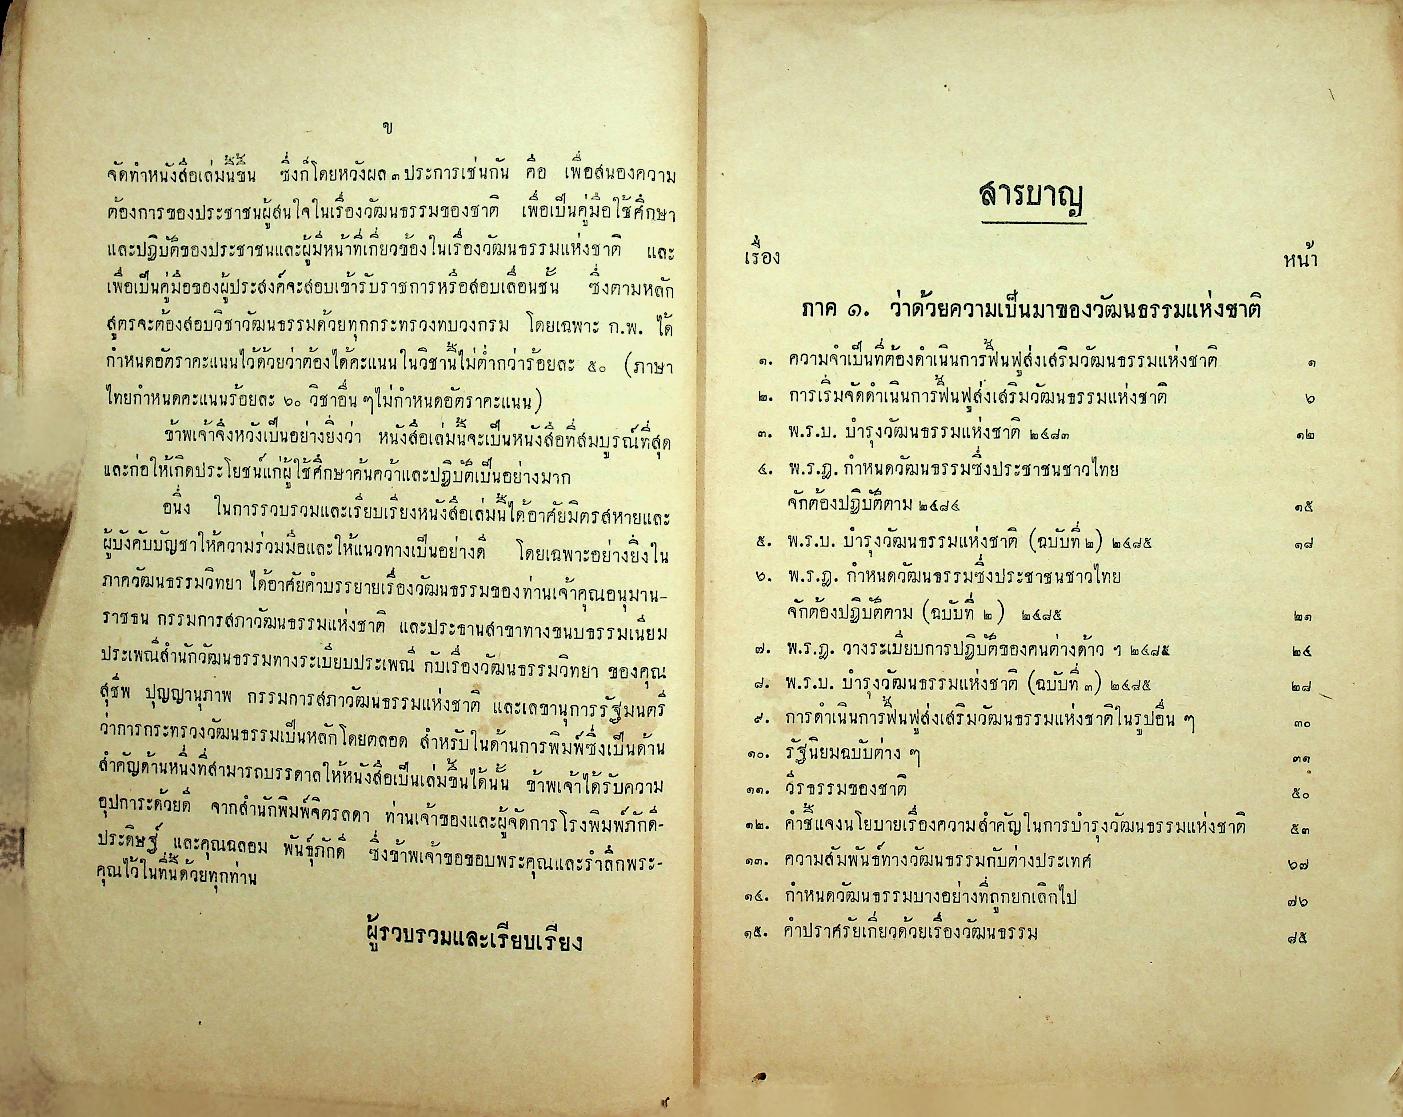 ข
จัดทำหนังสือเล่มนี้ขึ้น ซึ่งก็โดยหวังผล ๓ ประการเช่นกัน คือ เพื่อสนองความ
ต้องการของประชาชนผู้สนใจในเรื่องวัฒนธรรมของชาติ เพื่อเป็นคู่มือใช้ศึกษา
และปฏิบัติของประชาชนและผู้มีหน้าที่เกี่ยวข้องในเรื่องวัฒนธรรมแห่งชาติ และ
เพื่อเป็นคู่มือของผู้ประสงค์จะสอบเข้ารับราชการหรือสอบเลื่อนชั้น ซึ่งตามหลัก
สูตรจะต้องสอบวิชาวัฒนธรรมด้วยทุกกระทรวงทบวงกรม โดยเฉพาะ ก.พ. ได้
กำหนดอัตราคะแนนไว้ด้วยว่าต้องได้คะแนนในวิชานี้ไม่ต่ำกว่าร้อยละ ๕๐ (ภาษา
ไทยกำหนดคะแนนร้อยละ ๖๐ วิชาอื่น ๆ ไม่กำหนดอัตราคะแนน)
ข้าพเจ้าจึงหวังเป็นอย่างยิ่งว่า หนังสือเล่มนี้จะเป็นหนังสือที่สมบูรณ์ที่สุด
และก่อให้เกิดประโยชน์แก่ผู้ใช้ศึกษาค้นคว้าและปฏิบัติเป็นอย่างมาก
อนึ่ง ในการรวบรวมและเรียบเรียงหนังสือเล่มนี้ได้อาศัยมิตรสหายและ
ผู้บังคับบัญชาให้ความร่วมมือและให้แนวทางเป็นอย่างดี โดยเฉพาะอย่างยิ่งใน
ภาควัฒนธรรมวิทยา ได้อาศัยคำบรรยายเรื่องวัฒนธรรมของท่านเจ้าคุณอนุมาน-
ราชธน กรรมการสภาวัฒนธรรมแห่งชาติ และประธานสาขาทางขนบธรรมเนียม
ประเพณีสำนักวัฒนธรรมทางระเบียบประเพณี กับเรื่องวัฒนธรรมวิทยา ของคุณ
สุชีพ ปุญญานุภาพ กรรมการสภาวัฒนธรรมแห่งชาติ และเลขานุการรัฐมนตรี
ว่าการกระทรวงวัฒนธรรมเป็นหลักโดยตลอด สำหรับในด้านการพิมพ์ซึ่งเป็นด้าน
สำคัญด้านหนึ่งที่สามารถบรรดาลให้หนังสือเป็นเล่มขึ้นได้นั้น ข้าพเจ้าได้รับความ
อุปการะด้วยดี จากสำนักพิมพ์จิตรลดา ท่านเจ้าของและผู้จัดการโรงพิมพ์ภักดี-
ประดิษฐ์ และคุณฉลอม พันธุ์ภักดี ซึ่งข้าพเจ้าขอขอบพระคุณและรำลึกพระ-
คุณไว้ในที่นี้ด้วยทุกท่าน
ผู้รวบรวมและเรียบเรียง
สารบาญ
เรื่อง หน้า
ภาค ๑. ว่าด้วยความเป็นมาของวัฒนธรรมแห่งชาติ
๑. ความจำเป็นที่ต้องดำเนินการฟื้นฟูส่งเสริมวัฒนธรรมแห่งชาติ ๑
๒. การเริ่มจัดดำเนินการฟื้นฟูส่งเสริมวัฒนธรรมแห่งชาติ ๖
๓. พ.ร.บ. บำรุงวัฒนธรรมแห่งชาติ ๒๔๘๓ ๑๒
๔. พ.ร.ฎ. กำหนดวัฒนธรรมซึ่งประชาชนชาวไทย
จักต้องปฏิบัติตาม ๒๔๘๔ ๑๕
๕. พ.ร.บ. บำรุงวัฒนธรรมแห่งชาติ (ฉบับที่ ๒) ๒๔๘๕ ๑๘
๖. พ.ร.ฎ. กำหนดวัฒนธรรมซึ่งประชาชนชาวไทย
จักต้องปฏิบัติตาม (ฉบับที่ ๒) ๒๔๘๕ ๒๑
๗. พ.ร.ฎ. วางระเบียบการปฏิบัติของคนต่างด้าว ฯ ๒๔๘๕ ๒๔
๘. พ.ร.บ. บำรุงวัฒนธรรมแห่งชาติ (ฉบับที่ ๓) ๒๔๘๕ ๒๘
๙. การดำเนินการฟื้นฟูส่งเสริมวัฒนธรรมแห่งชาติในรูปอื่น ๆ ๓๐
๑๐. รัฐนิยมฉบับต่าง ๆ ๓๑
๑๑. วีรธรรมของชาติ ๕๐
๑๒. คำชี้แจงนโยบายเรื่องความสำคัญในการบำรุงวัฒนธรรมแห่งชาติ ๕๓
๑๓. ความสัมพันธ์ทางวัฒนธรรมกับต่างประเทศ ๖๗
๑๔. กำหนดวัฒนธรรมบางอย่างที่ถูกยกเลิกไป ๗๖
๑๕. คำปราศรัยเกี่ยวด้วยเรื่องวัฒนธรรม ๘๕